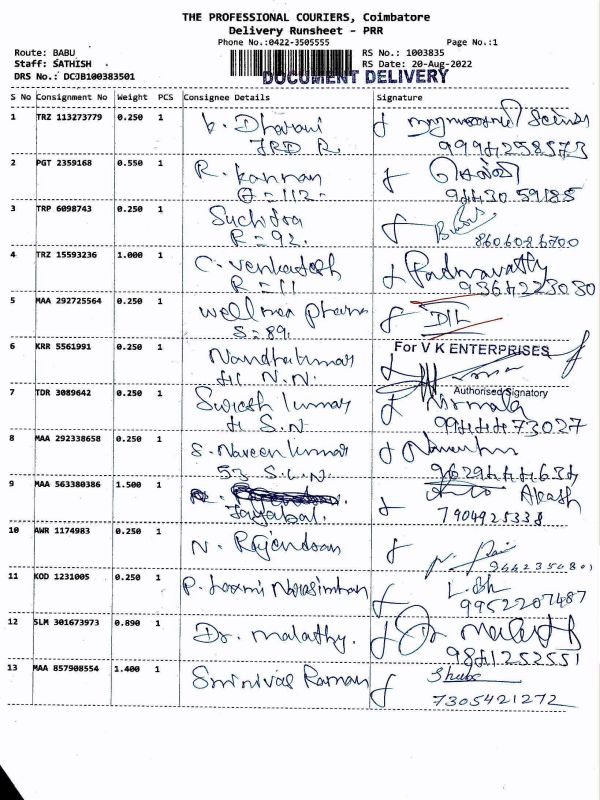 THE PROFESSIONAL COURIERS, Coimbatore
Delivery Runsheet - PRR
Phone No.:0422-3505555 Page No.:1
Route: BABU RS No.: 1003835
Staff: SATHISH RS Date: 20-Aug-2022
DRS No.: DCJB100383501 DOCUMENT DELIVERY
S No Consignment No Weight PCS Consignee Details Signature
1 TRZ 113273779 0.250 1 K. Dharani
JRD R. 9994258573
2 PGT 2359168 0.550 1 R. Kannan செல்வி
G = 112. 94430 59185
3 TRP 6098743 0.250 1 Suchitra
R = 92. 8606086700
4 TRZ 15593236 1.000 1 C. Venkatesh Padmavathy
R = 11 9364223030
5 MAA 292725564 0.250 1 Wellnex Pharma
S = 89.
6 KRR 5561991 0.250 1 Nandhakumar For V K ENTERPRISES
H. N.N. Authorised Signatory
7 TDR 3089642 0.250 1 Suresh Kumar Nirmala
H S.N 9944473027
8 MAA 292338658 0.250 1 S. Naveen Kumar
53 S.L.N. 9629444634
9 MAA 563380386 1.500 1 Akash
Jayabal. 7904925338
10 AWR 1174983 0.250 1 N. Rajendran
11 KOD 1231005 0.250 1 P. Laxmi Narasimhan
9952207487
12 SLM 301673973 0.890 1 Dr. Malathy. Dr Malathy
9841252551
13 MAA 857908554 1.400 1 Srinivas Raman
7305421272